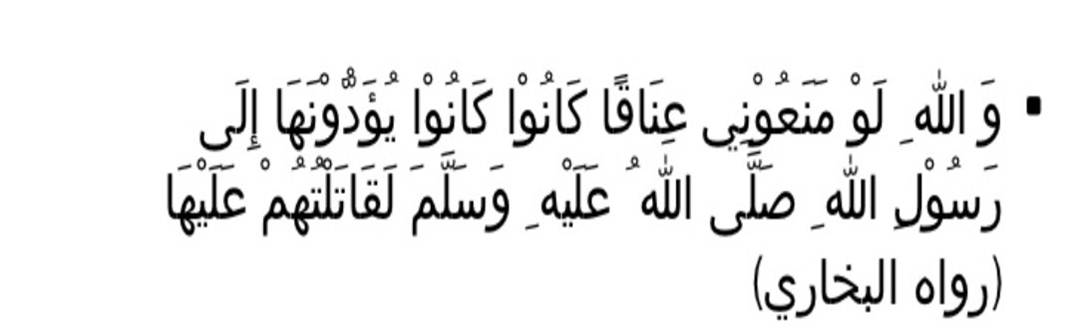 ▪ وَ اللهِ لَوْ مَنَعُوْنِي عِنَاقًا كَانُوْا كَانُوْا يُؤَدُّوْنَهَا إِلَى
رَسُوْلِ اللهِ صَلَّى اللهُ عَلَيْهِ وَسَلَّمَ لَقَاتَلْتُهُمْ عَلَيْهَا
(رواه البخاري)